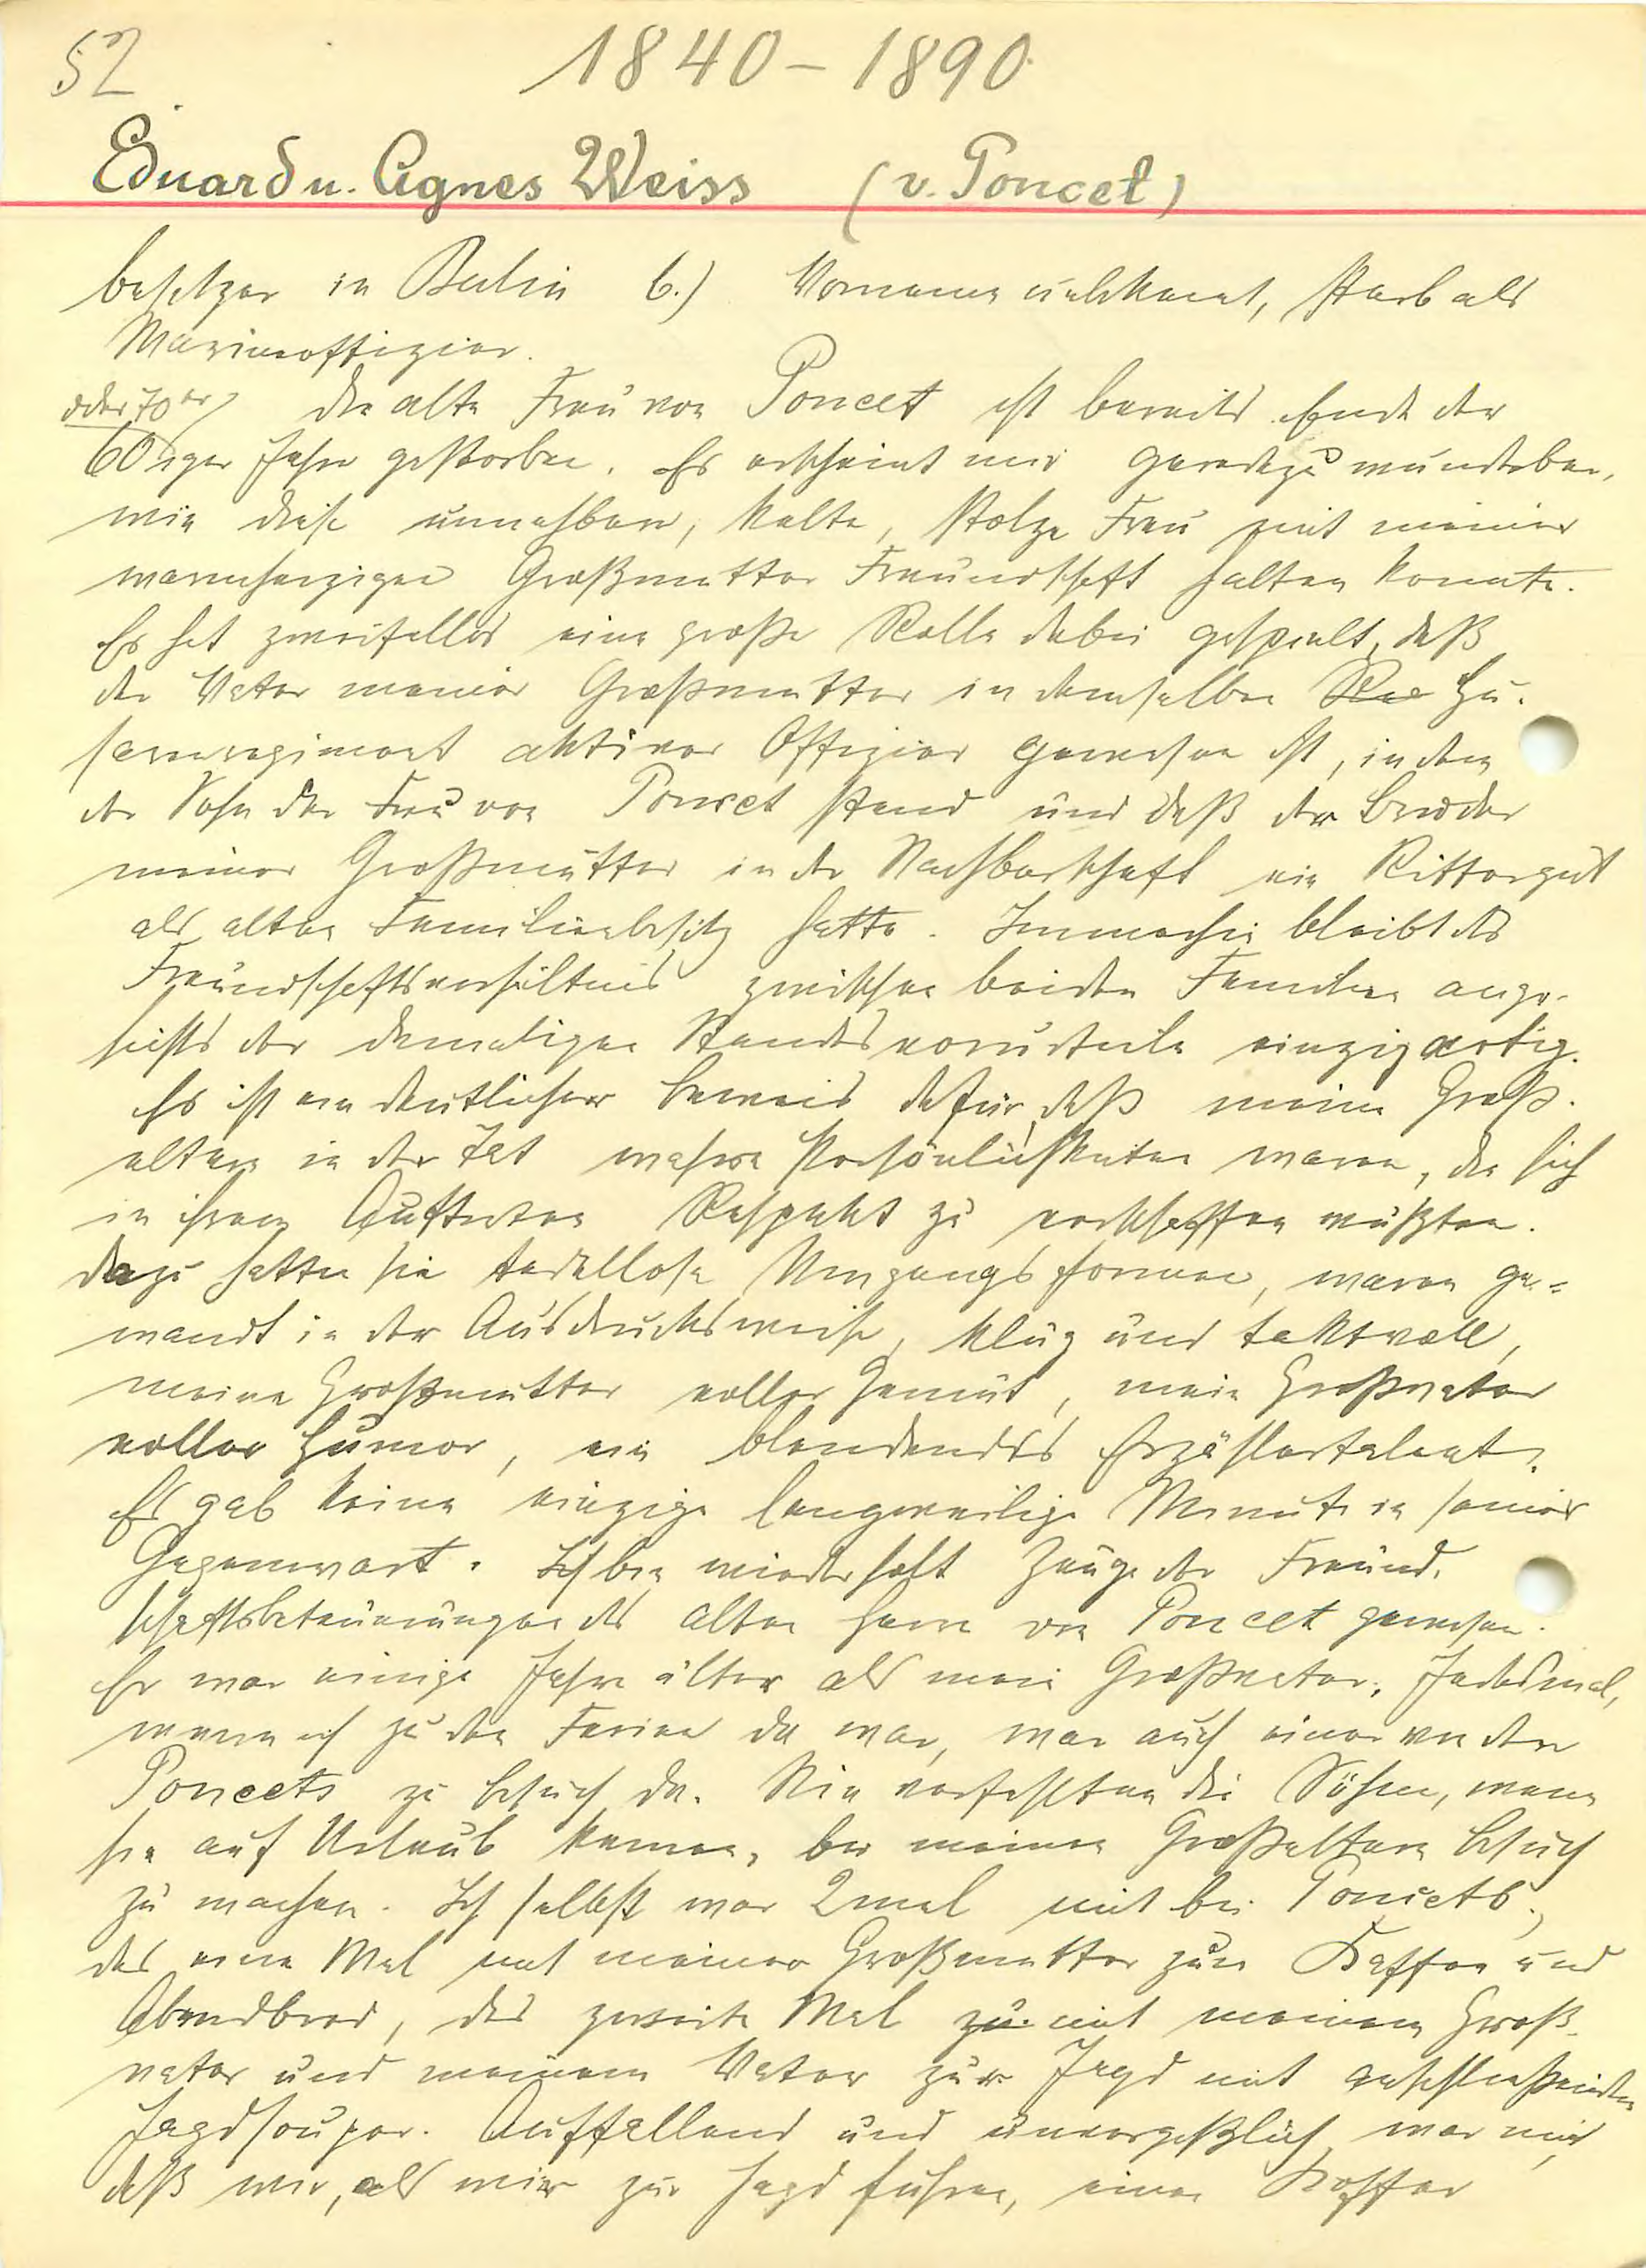 52 1840 – 1890
Eduard u. Agnes Weiss (v. Poncet)
besitzer in Berlin 6.) Vorname unbekannt, starb als
Marineoffizier.
oder 70er
Die alte Frau von Poncet ist bereits Ende der
60iger Jahre gestorben. Es erscheint mir geradezu wunderbar,
wie diese unnahbare, kalte, stolze Frau mit meiner
warmherzigen Großmutter Freundschaft halten konnte.
Es hat zweifellos eine große Rolle dabei gespielt, daß
der Vater meiner Großmutter in demselben Hu-
sarenregiment aktiver Offizier gewesen ist, in dem
der Sohn der Frau von Poncet stand und daß der Bruder
meiner Großmutter in der Nachbarschaft ein Rittergut
als alten Familienbesitz hatte. Immerhin bleibt das
Freundschaftsverhältnis zwischen beiden Familien ange-
sichts der damaligen Standesvorurteile einzigartig.
Es ist ein deutlicher Beweis dafür, daß meine Groß-
eltern in der Tat wahre Persönlichkeiten waren, die sich
in ihrem Auftreten Respekt zu verschaffen wußten.
Dazu hatten sie tadellose Umgangsformen, waren ge-
wandt in der Ausdrucksweise, klug und taktvoll,
meine Großmutter voller Gemüt, mein Großvater
voller Humor, ein blendendes Erzählertalent.
Es gab keine einzige langweilige Minute in seiner
Gegenwart. Ich bin wiederholt Zeuge der Freund-
schaftsbeteuerungen des alten Herrn von Poncet gewesen.
Er war einige Jahre älter als mein Großvater. Jedesmal,
wenn ich zu den Ferien da war, war auch einer von den
Poncets zu Besuch da. Nie verfehlten die Söhne, wenn
sie auf Urlaub kamen, bei meinen Großeltern Besuch
zu machen. Ich selbst war 2mal mit bei Poncets,
das eine Mal mit meiner Großmutter zum Kaffee und
Abendbrod, das zweite Mal zu mit meinem Groß-
vater und meinem Vater zur Jagd mit anschließenden
Jagdsouper. Auffallend und unvergeßlich war mir,
daß wir, als wir zur Jagd fuhren, einen Koffer